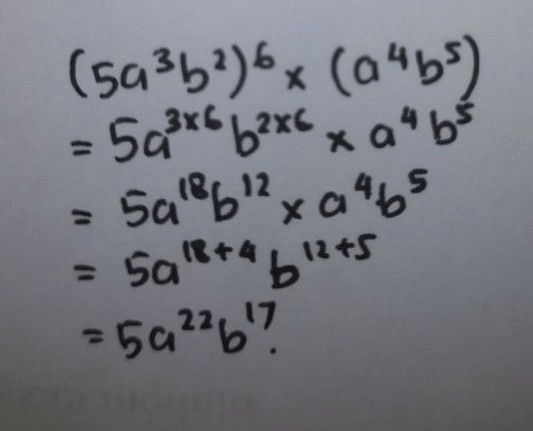 (5a³b²)⁶ × (a⁴b⁵)
= 5a³ˣ⁶ b²ˣ⁶ × a⁴b⁵
= 5a¹⁸b¹² × a⁴b⁵
= 5a¹⁸⁺⁴ b¹²⁺⁵
= 5a²²b¹⁷.